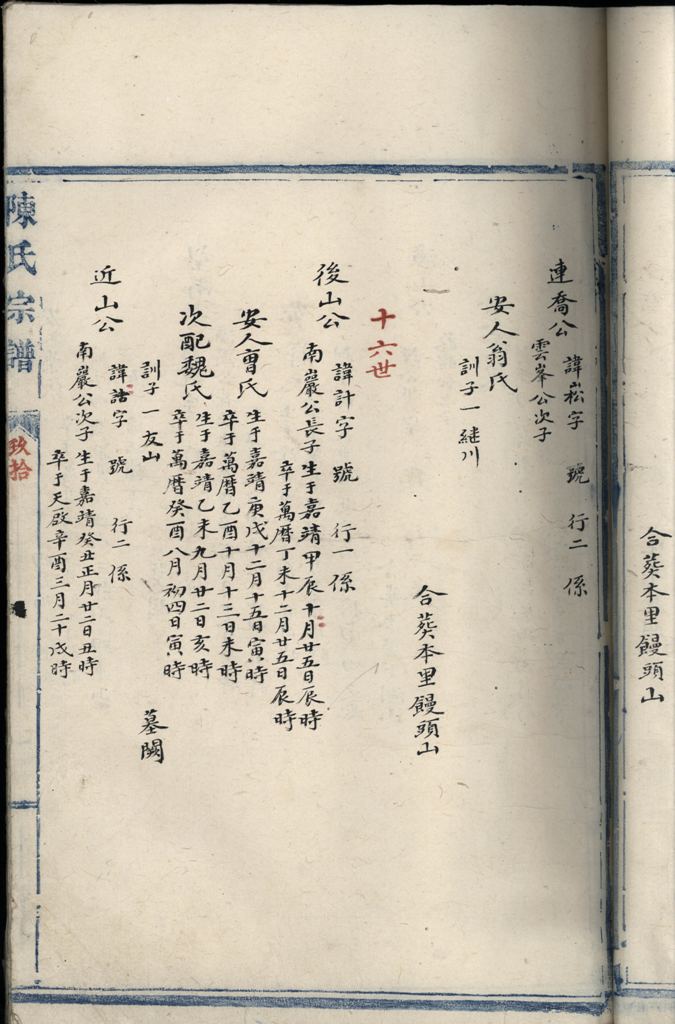 合葵本里饅頭山
連喬公
諱崧字 號 行二係
雲峯公次子
安人翁氏
訓子一継川
合葵本里饅頭山
十六世
後山公
諱計字 號 行一係
南巖公長子生于嘉靖甲辰十月廿五日辰時
卒于萬曆丁未十二月廿五日辰時
安人曺氏
生于嘉靖庚戌十二月十五日寅時
卒于萬曆乙酉十月十三日未時
次配魏氏
生于嘉靖乙未九月廿二日亥時
卒于萬曆癸酉八月初四日寅時
訓子一友山
墓闕
近山公
諱詁字 號 行二係
南巖公次子生于嘉靖癸丑正月廿二日丑時
卒于天啟辛酉三月二十戌時
陳氏宗譜
玖拾